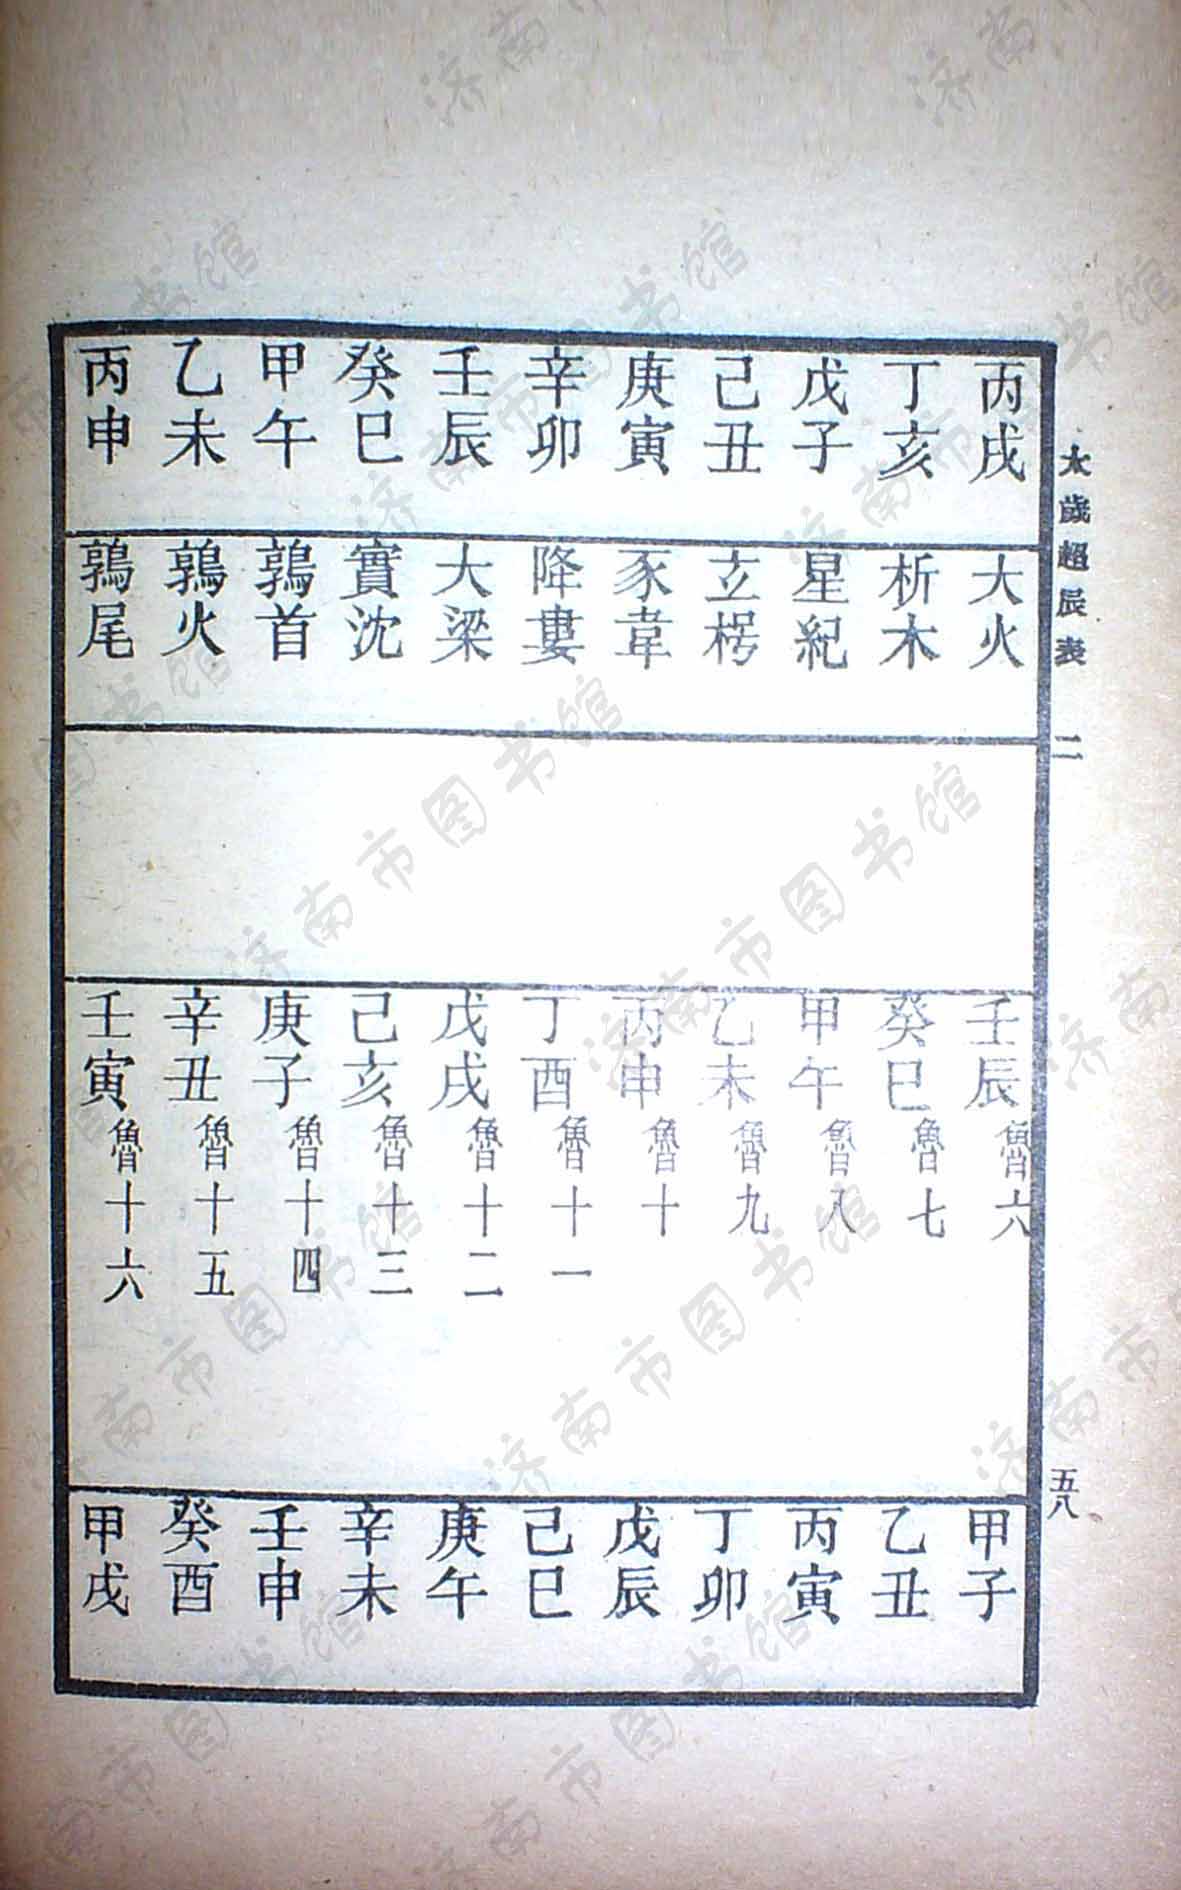 太歲超辰表 二 五八
丙戌 大火 壬辰 魯六 甲子
丁亥 析木 癸巳 魯七 乙丑
戊子 星紀 甲午 魯八 丙寅
己丑 玄枵 乙未 魯九 丁卯
庚寅 豕韋 丙申 魯十 戊辰
辛卯 降婁 丁酉 魯十一 己巳
壬辰 大梁 戊戌 魯十二 庚午
癸巳 實沈 己亥 魯十三 辛未
甲午 鶉首 庚子 魯十四 壬申
乙未 鶉火 辛丑 魯十五 癸酉
丙申 鶉尾 壬寅 魯十六 甲戌
济南市图书馆